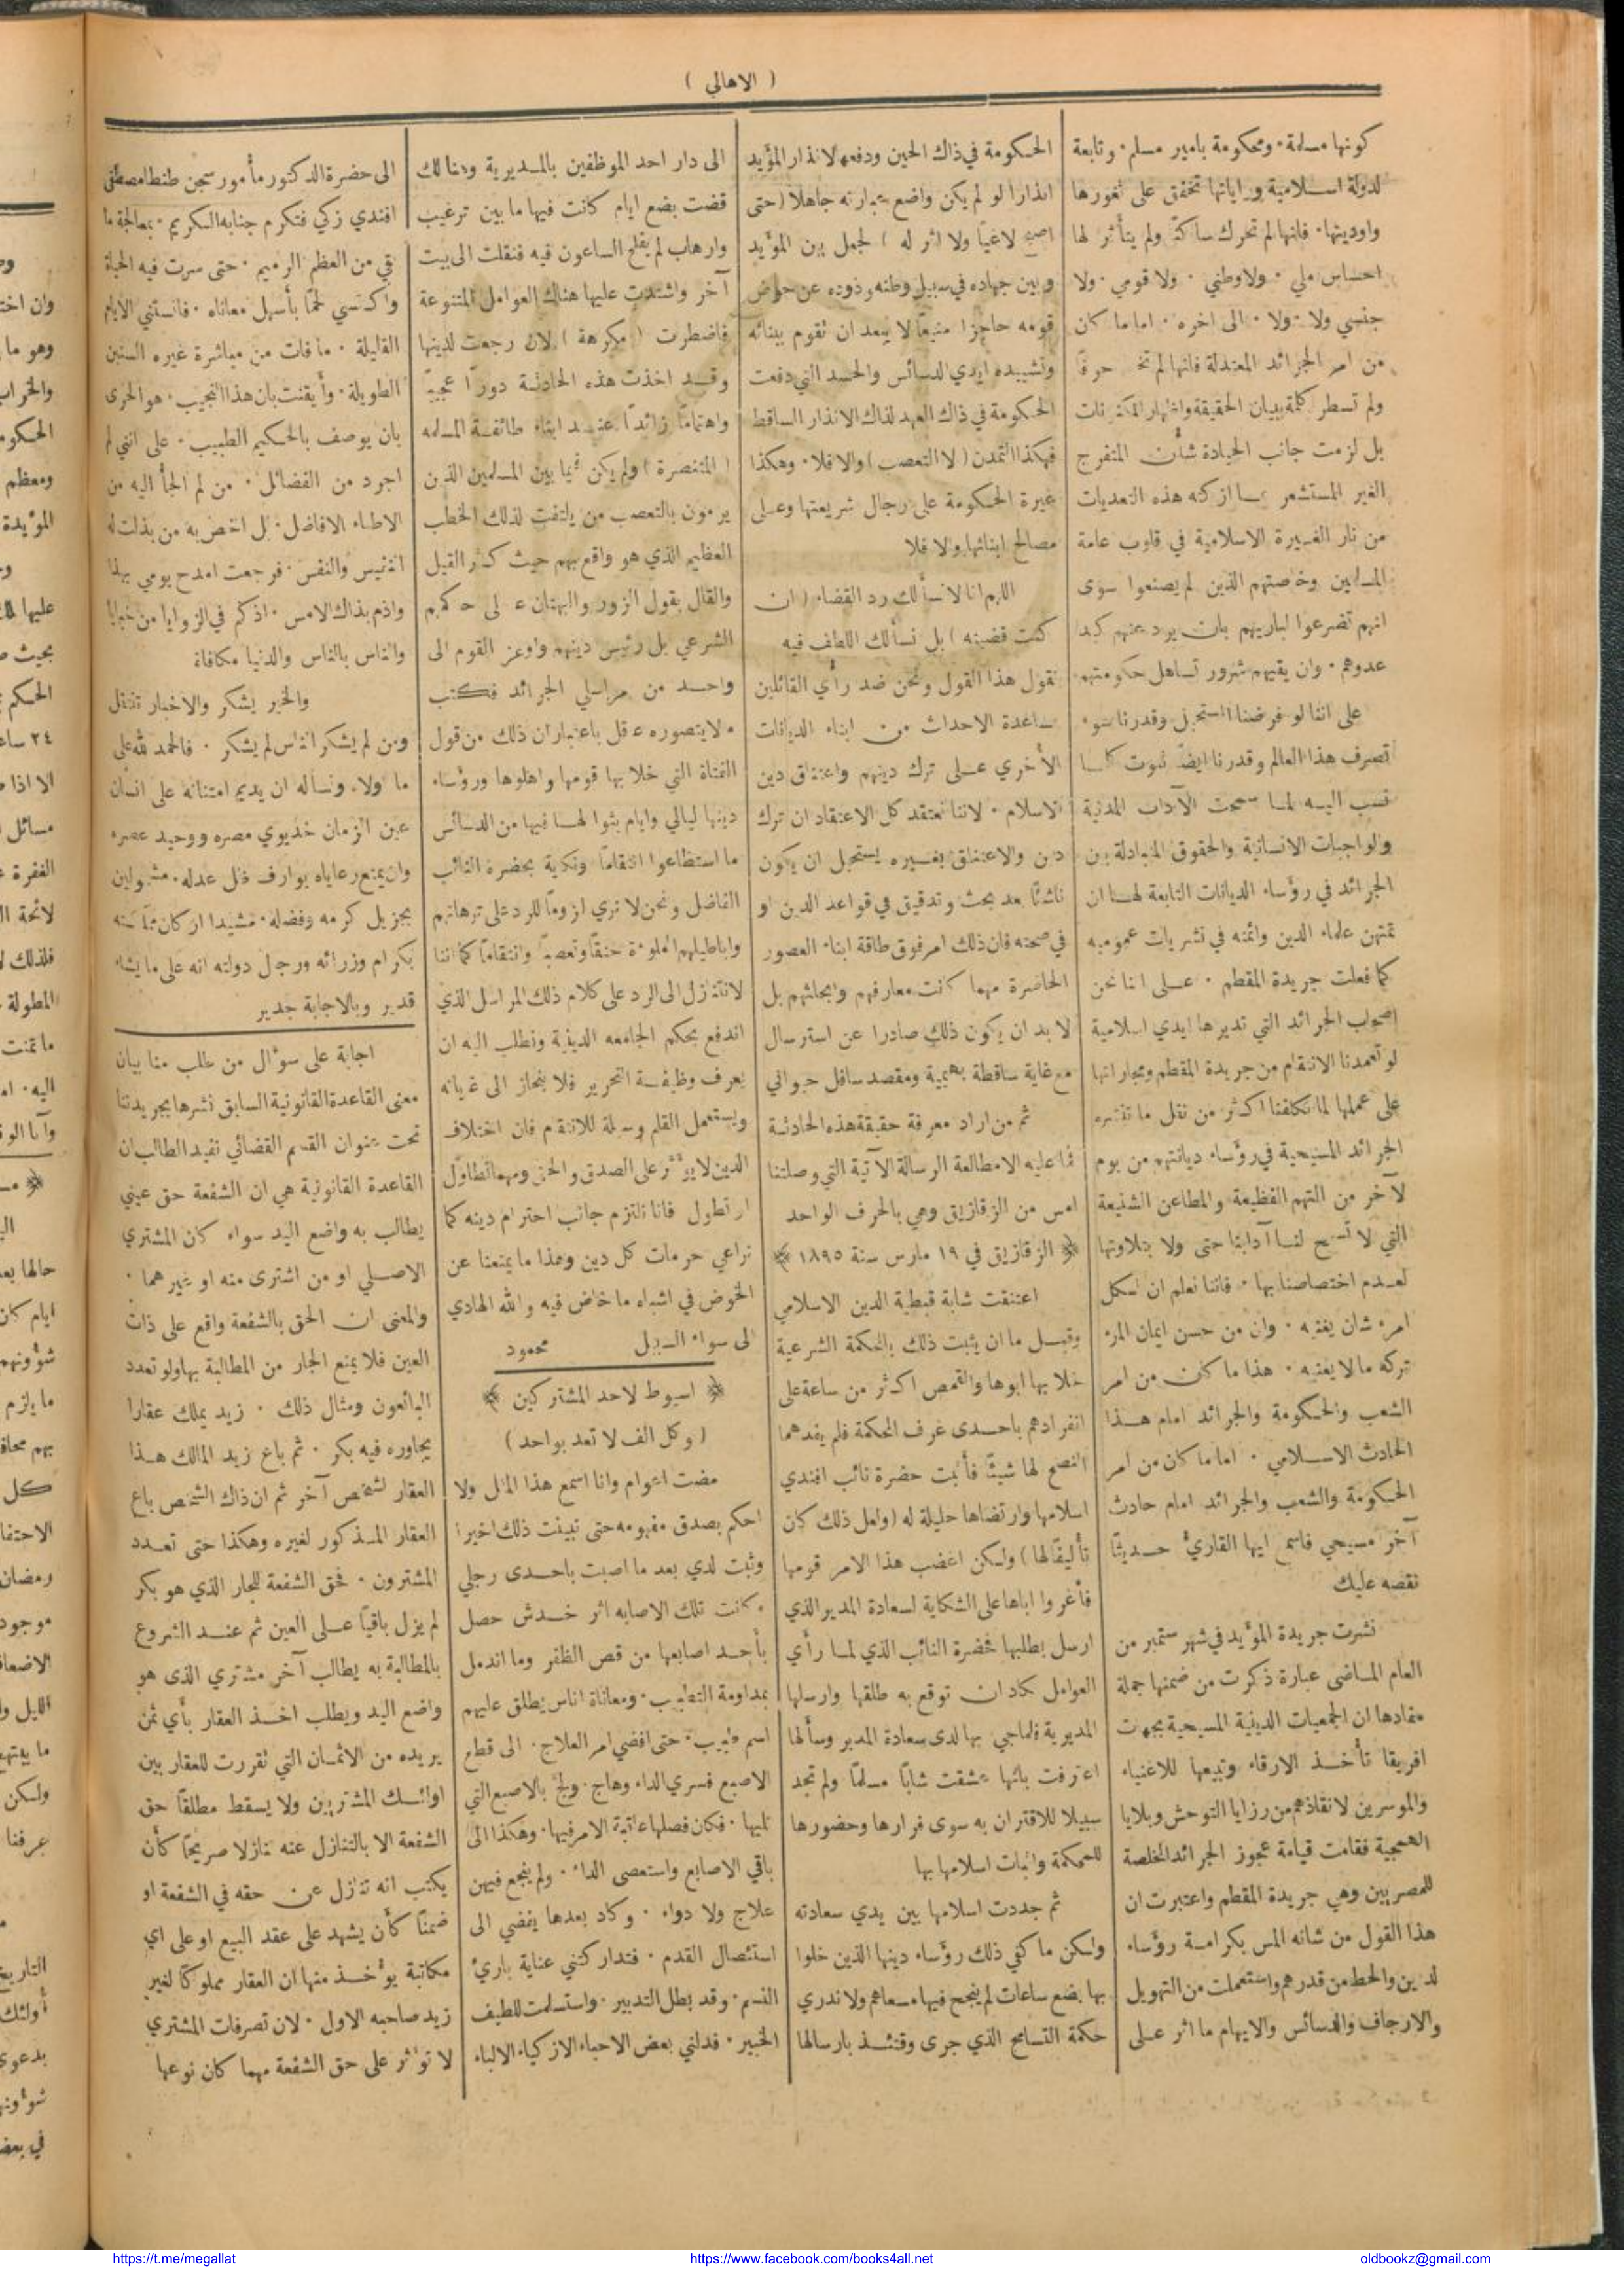 ( الاهالي )
كونها مسلمة · ومحكومة بامير مسلم · وتابعة
لدولة اسلامية وراياتها تخفق على ثغورها
واوديتها · فانها لم تحرك ساكناً ولم يتأثر لها
احساس ملي · ولا وطني · ولا قومي · ولا
جنسي ولا · ولا · الى اخره · اما ما كان
من امر الجرائد المعتدلة فانها لم تخط حرفاً
ولم تسطر كلمة ببيان الحقيقة واظهار المكنونات
بل لزمت جانب الحيادة شأن المتفرج
الغير المستشعر بما ازكته هذه التعديات
من نار الغيرة الاسلامية في قلوب عامة
المسلمين وخاصتهم الذين لم يصنعوا سوى
انهم تضرعوا لباريهم بان يرد عنهم كيد
عدوهم · وان يقيهم شرور تساهل حكومتهم
على اننا لو فرضنا المستحيل وقدرنا سوء
تصرف هذا العالم وقدرنا ايضاً ثبوت كلما
نسب اليه لما سمحت الآداب المدنية
والواجبات الانسانية والحقوق المتبادلة بين
الجرائد في رؤساء الديانات التابعة لهـا ان
تمتهن علماء الدين وائمته في نشريات عموميه
كما فعلت جريدة المقطم · عـلى اننا نحن
اصحاب الجرائد التي تديرها ايدي اسلامية
لو تعمدنا الانتقام من جريدة المقطم ومجاراتها
على عملها لما تكلفنا اكثر من نقل ما تنشره
الجرائد المسيحية في رؤساء ديانتهم من يوم
لآخر من التهم الفظيعة والمطاعن الشنيعة
التي لا تسمح لنـا آدابنا حتى ولا بتلاوتها
لعـدم اختصاصنا بها · فاننا نعلم ان لكل
امرء شان يغنيه · وان من حسن ايمان المرء
تركه ما لا يعنيه · هذا ما كان من امر
الشعب والحكومة والجرائد امام هـذا
الحادث الاسـلامي · اما ما كان من امر
الحكومة والشعب والجرائد امام حادث
آخر مسيحي فاسمع ايها القارئ حـديثاً
نقصه عليك
نشرت جريدة المؤيد في شهر ستمبر من
العام المـاضى عبارة ذكرت من ضمنها جملة
مفادها ان الجمعيات الدينية المسيحية بجهات
افريقا تأخـذ الارقاء وتبيعها للاغنياء
والموسرين لانقاذهم من رزايا التوحش وبلايا
الهمجية فقامت قيامة عجوز الجرائد المخلصة
للمصريين وهي جريدة المقطم واعتبرت ان
هذا القول من شانه المس بكرامـة رؤساء
لدين والحط من قدرهم واستعملت من التهويل
والارجاف والدسائس والايهام ما اثر عـلى
الحكومة في ذاك الحين ودفعها لانذار المؤيد
انذارا لو لم يكن واضع عبارته جاهلاً ( حتى
اصبح لاغياً ولا اثر له ) لجعل بين المؤيد
وبين جهاده في سبيل وطنه وذوده عن حوض
قومه حاجزا منيعاً لا يبعد ان تقوم ببنائه
وتشييده ايدي الدسائس والحسد التي دفعت
الحكومة في ذاك العهد لذاك الانذار الساقط
فهكذا التمدن ( لا التعصب ) والا فلا · وهكذا
غيرة الحكومة على رجال شريعتها وعـلى
مصالح ابنائها والا فلا
اللهم انا لا نسألك رد القضاء ( ان
كنت قضيته ) بل نسألك اللطف فيه
نقول هذا القول ونحن ضد رأي القائلين
بمساعدة الاحداث من ابناء الديانات
الأخري عـلى ترك دينهم واعتناق دين
الاسلام · لاننا نعتقد كل الاعتقاد ان ترك
دين والاعتناق بغـيره يستحيل ان يكون
ناشئاً بعد بحث وتدقيق في قواعد الدين او
في صحته فان ذلك امر فوق طاقة ابناء العصور
الحاضرة مهما كانت معارفهم وابحاثهم بل
لا بد ان يكون ذلك صادرا عن استرسال
مع غاية ساقطة بهيمية ومقصد سافل حيواني
ثم من اراد معرفة حقيقة هذه الحادثة
فما عليه الا مطالعة الرسالة الآتية التي وصلتنا
امس من الزقازيق وهي بالحرف الواحد
﴿ الزقازيق في ١٩ مارس سنة ١٨٩٥ ﴾
اعتنقت شابة قبطية الدين الاسلامي
وقبـل ما ان يثبت ذلك بالمحكمة الشرعية
خلا بها ابوها والقمص اكثر من ساعة على
انفرادهم باحـدى غرف المحكمة فلم يفدهما
النصح لها شيئاً فأثبت حضرة نائب افندي
اسلامها وارتضاها حليلة له ( ولعل ذلك كان
تأليفاً لها ) ولكن اغضب هذا الامر قومها
فأغروا اباها على الشكاية لسعادة المدير الذي
ارسل بطلبها فحضرة النائب الذي لمـا رأي
العوامل كاد ان توقع به طلقها وارسلها
المديرية فلما جي بها لدى سعادة المدير وسألها
اعترفت بانها عشقت شاباً مسلماً ولم تجد
سبيلا للاقتران به سوى فرارها وحضورها
للمحكمة واثبات اسلامها بها
ثم جددت اسلامها بين يدي سعادته
ولكن ما كفي ذلك رؤساء دينها الذين خلوا
بها بضع ساعات لم ينجح فيها مسعاهم ولا ندري
حكمة التسامح الذي جرى وقتئـذ بارسالها
الى دار احد الموظفين بالمـديرية وهنالك
قضت بضع ايام كانت فيها ما بين ترغيب
وارهاب لم يفلح الساعون فيه فنقلت الى بيت
آخر واشتدت عليها هناك العوامل المتنوعة
فاضطرت ( مكرهة ) لان رجعت لدينها
وقـد اخذت هذه الحادثة دوراً عجيباً
واهتماماً زائداً عنـد ابناء طائفـة المسلمه
( المتنصرة ) ولم يكن فيما بين المسلمين الذين
يرمون بالتعصب من يلتفت لذلك الخطب
العظيم الذي هو واقع بهم حيث كثر القيل
والقال بقول الزور والبهتان عـلى حاكمهم
الشرعي بل رئيس دينهم واوعز القوم الى
واحـد من مراسلي الجرائد فكتب
ما لا يتصوره عقل باعتبار ان ذلك من قول
الفتاة التي خلا بها قومها واهلوها ورؤساء
دينها ليالي وايام بثوا لهـا فيها من الدسائس
ما استطاعوا انتقاماً ونكاية بحضرة النائب
الفاضل ونحن لا نري لزوماً للرد على ترهاتهم
واباطيلهم المملوءة حنقاً وتعصباً وانتقاماً كما اننا
لا نتنازل الى الرد على كلام ذلك المراسل الذي
اندفع بحكم الجامعه الدينية ونطلب اليه ان
يعرف وظيفـة التحرير فلا ينحاز الى غاياته
ويستعمل القلم وسيلة للانتقام فان اختلاف
الدين لا يؤثر على الصدق والحق ومهما تطاول
او تطول فانا نلتزم جانب احترام دينه كما
نراعي حرمات كل دين وهذا ما يمنعنا عن
الخوض في اشباه ما خاض فيه والله الهادي
الى سواء السبيل محمود
﴿ اسيوط لاحد المشتركين ﴾
( وكل الف لا تعد بواحد )
مضت اعوام وانا اسمع هذا المثل ولا
احكم بصدق مفهومه حتى تبينت ذلك اخيرا
وثبت لدي بعد ما اصبت باحـدى رجلي
وكانت تلك الاصابه اثر خـدش حصل
بأحـد اصابعها من قص الظفر وما اندمل
بمداومة التطبيب · ومعاناة اناس يطلق عليهم
اسم طبيب · حتى افضي امر العلاج · الى قطع
الاصبع فسري الداء وهاج · ولج بالاصبع التي
تليها · فكان فصلها عاقبة الامر فيها · وهكذا الى
باقي الاصابع واستعصى الداء · ولم ينجع فيهن
علاج ولا دواء · وكاد بعدها يفضي الى
استئصال القدم · فتداركتني عناية بارئ
النسم · وقد بطل التدبير · واستسلمت للطيف
الخبير · فدلني بعض الاحباء الازكياء الالباء
الى حضرة الدكتور مأمور سجن طنطا مصطفى
افندي زكي فتكرم جنابه الكريم · بمعالجة ما
بقي من العظم الرميم · حتى سرت فيه الحياة
واكتسي لحمًا بأسهل معاناه · فانستني الايام
القليلة · ما فات من مباشرة غيره السنين
الطويلة · وأيقنت بان هذا النجيب · هو الحرى
بان يوصف بالحكيم الطبيب · على انني لم
اجرد من الفضائل · من لم الجأ اليه من
الاطباء الافاضل · بل اخص به من بذلت له
النفيس والنفس · فرجعت امدح يومي بهذا
واذم بذاك الامس · اذكم في الزوايا من خبايا
والناس بالناس والدنيا مكافاة
والخير يشكر والاخبار تنتقل
ومن لم يشكر الناس لم يشكر · فالحمد لله على
ما ولاه ونسأله ان يديم امتنانه على انسان
عين الزمان خديوي مصره ووحيد عصره
وان يمتع رعاياه بوارف ظل عدله · مشمولين
بجزيل كرمه وفضله · مشيدا اركان مملكته
بكرام وزرائه ورجال دولته انه على ما يشاء
قدير وبالاجابة جدير
اجابة على سؤال من طلب منا بيان
معنى القاعدة القانونية السابق نشرها بجريدتنا
تحت عنوان القسم القضائي نفيد الطالب ان
القاعدة القانونية هي ان الشفعة حق عيني
يطالب به واضع اليد سواء كان المشتري
الاصـلي او من اشترى منه او غيرهما ·
والمعنى ان الحق بالشفعة واقع على ذات
العين فلا يمنع الجار من المطالبة بها ولو تعدد
البائعون ومثال ذلك · زيد يملك عقارا
يجاوره فيه بكر · ثم باع زيد المالك هـذا
العقار لشخص آخر ثم ان ذاك الشخص باع
العقار المـذكور لغيره وهكذا حتى تعـدد
المشترون · فحق الشفعة للجار الذي هو بكر
لم يزل باقياً عـلى العين ثم عنـد الشروع
بالمطالبة به يطالب آخر مشتري الذى هو
واضع اليد ويطلب اخـذ العقار بأي ثمن
يريده من الاثمـان التي تقررت للعقار بين
اولئـك المشتريين ولا يسقط مطلقاً حق
الشفعة الا بالتنازل عنه تنازلا صريحًا كأن
يكتب انه تنازل عن حقه في الشفعة او
ضمناً كأن يشهد على عقد البيع او على اي
مكاتبة يؤخـذ منها ان العقار مملوكاً لغير
زيد صاحبه الاول · لان تصرفات المشتري
لا تؤثر على حق الشفعة مهما كان نوعها
https://t.me/megallat
https://www.facebook.com/books4all.net
oldbookz@gmail.com